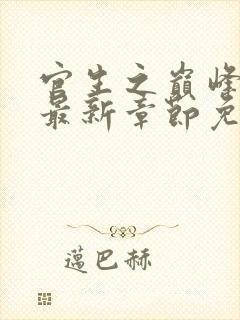 官生之巅峰
最新章节免
蔼巴赫